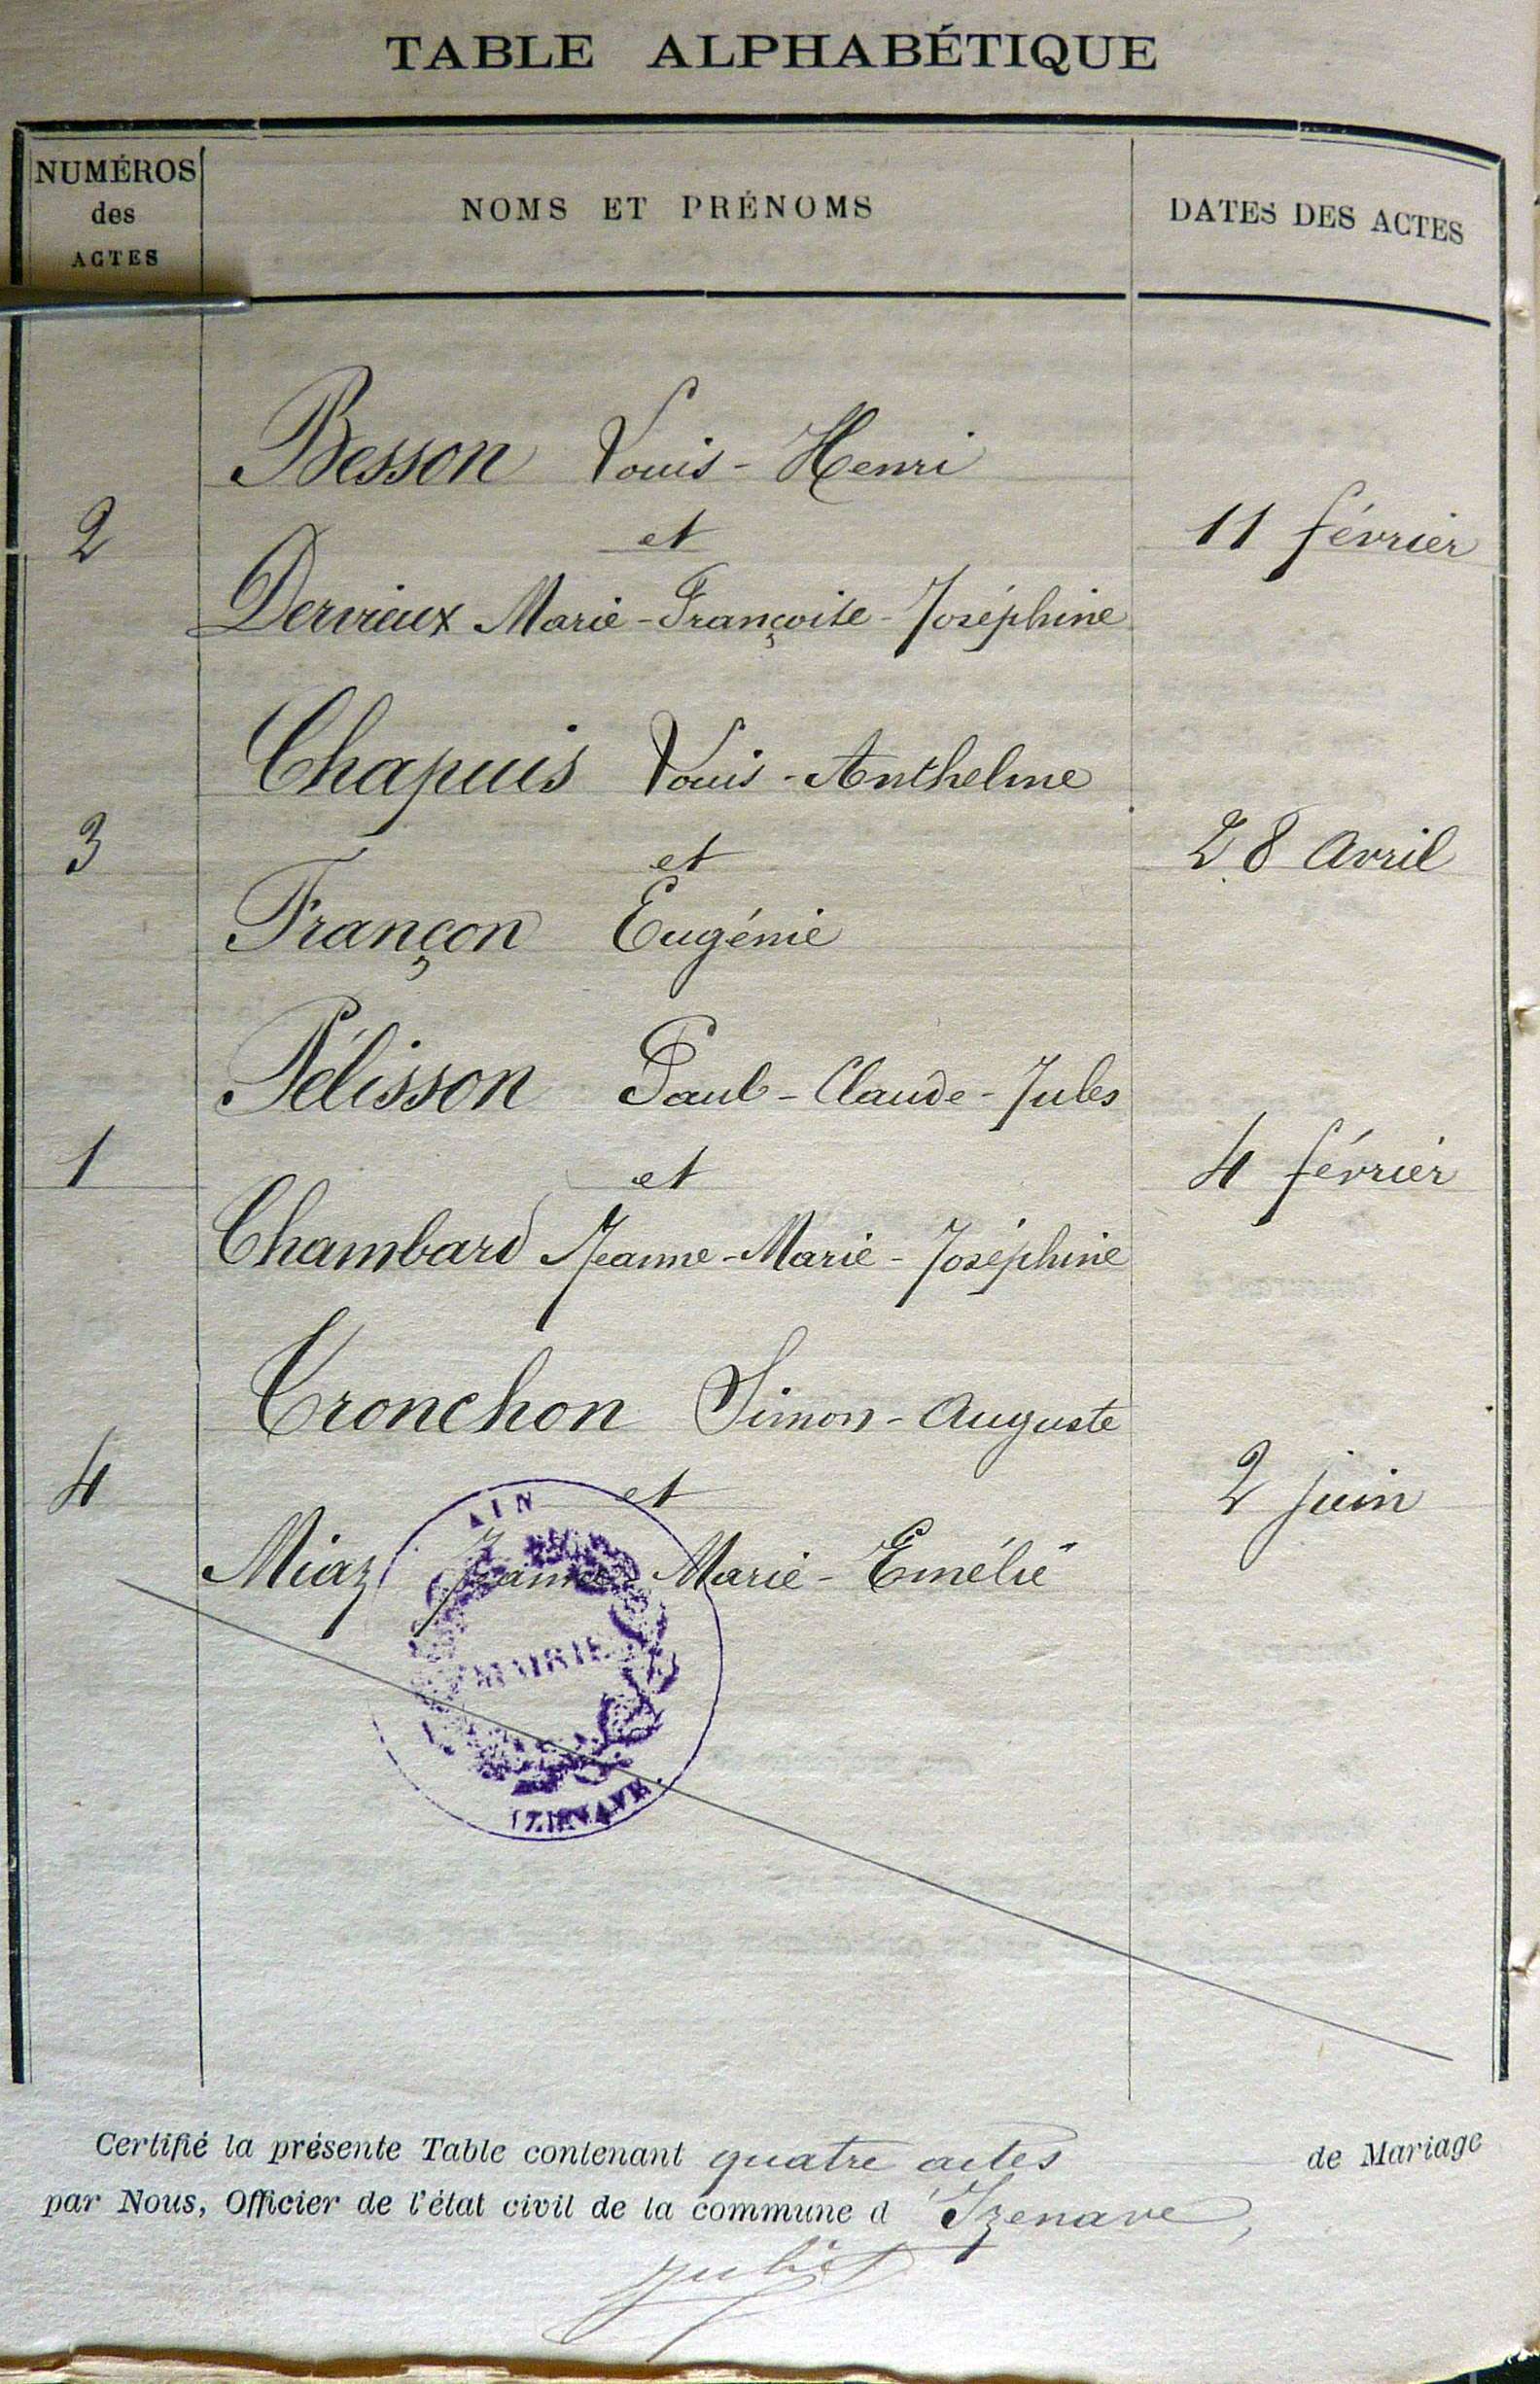 TABLE ALPHABÉTIQUE
NUMÉROS
des
ACTES
NOMS ET PRÉNOMS
DATES DES ACTES
Besson Louis-Henri
2 et 11 février
Dervieux Marie-Françoise-Joséphine
Chapuis Louis-Anthelme
3 et 28 avril
Françon Eugénie
Pélisson Paul-Claude-Jules
1 et 4 février
Chambard Jeanne-Marie-Joséphine
Tronchon Simon-Auguste
4 et 2 juin
Miaz Jeanne-Marie-Emélie
AIN
MAIRIE
IZENAVE
Certifié la présente Table contenant quatre actes de Mariage
par Nous, Officier de l'état civil de la commune d'Izenave,